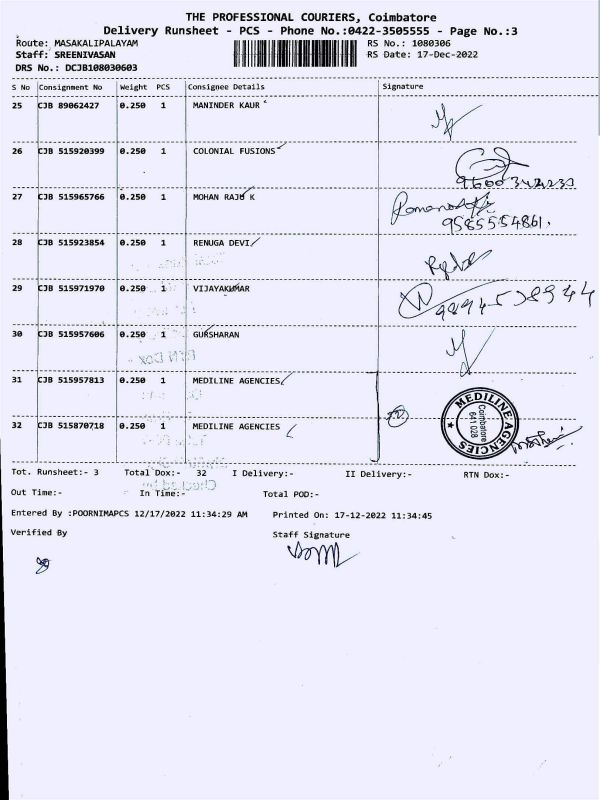 THE PROFESSIONAL COURIERS, Coimbatore
Delivery Runsheet - PCS - Phone No.:0422-3505555 - Page No.:3
Route: MASAKALIPALAYAM RS No.: 1080306
Staff: SREENIVASAN RS Date: 17-Dec-2022
DRS No.: DCJB108030603
S No Consignment No Weight PCS Consignee Details Signature
25 CJB 89062427 0.250 1 MANINDER KAUR
26 CJB 515920399 0.250 1 COLONIAL FUSIONS
27 CJB 515965766 0.250 1 MOHAN RAJU K
9585554861.
28 CJB 515923854 0.250 1 RENUGA DEVI
29 CJB 515971970 0.250 1 VIJAYAKUMAR
9894538944
30 CJB 515957606 0.250 1 GURSHARAN
31 CJB 515957813 0.250 1 MEDILINE AGENCIES
32 CJB 515870718 0.250 1 MEDILINE AGENCIES
MEDILINE AGENCIES
Coimbatore
641 028
Tot. Runsheet:- 3 Total Dox:- 32 I Delivery:- II Delivery:- RTN Dox:-
Out Time:- In Time:- Total POD:-
Entered By :POORNIMAPCS 12/17/2022 11:34:29 AM Printed On: 17-12-2022 11:34:45
Verified By Staff Signature